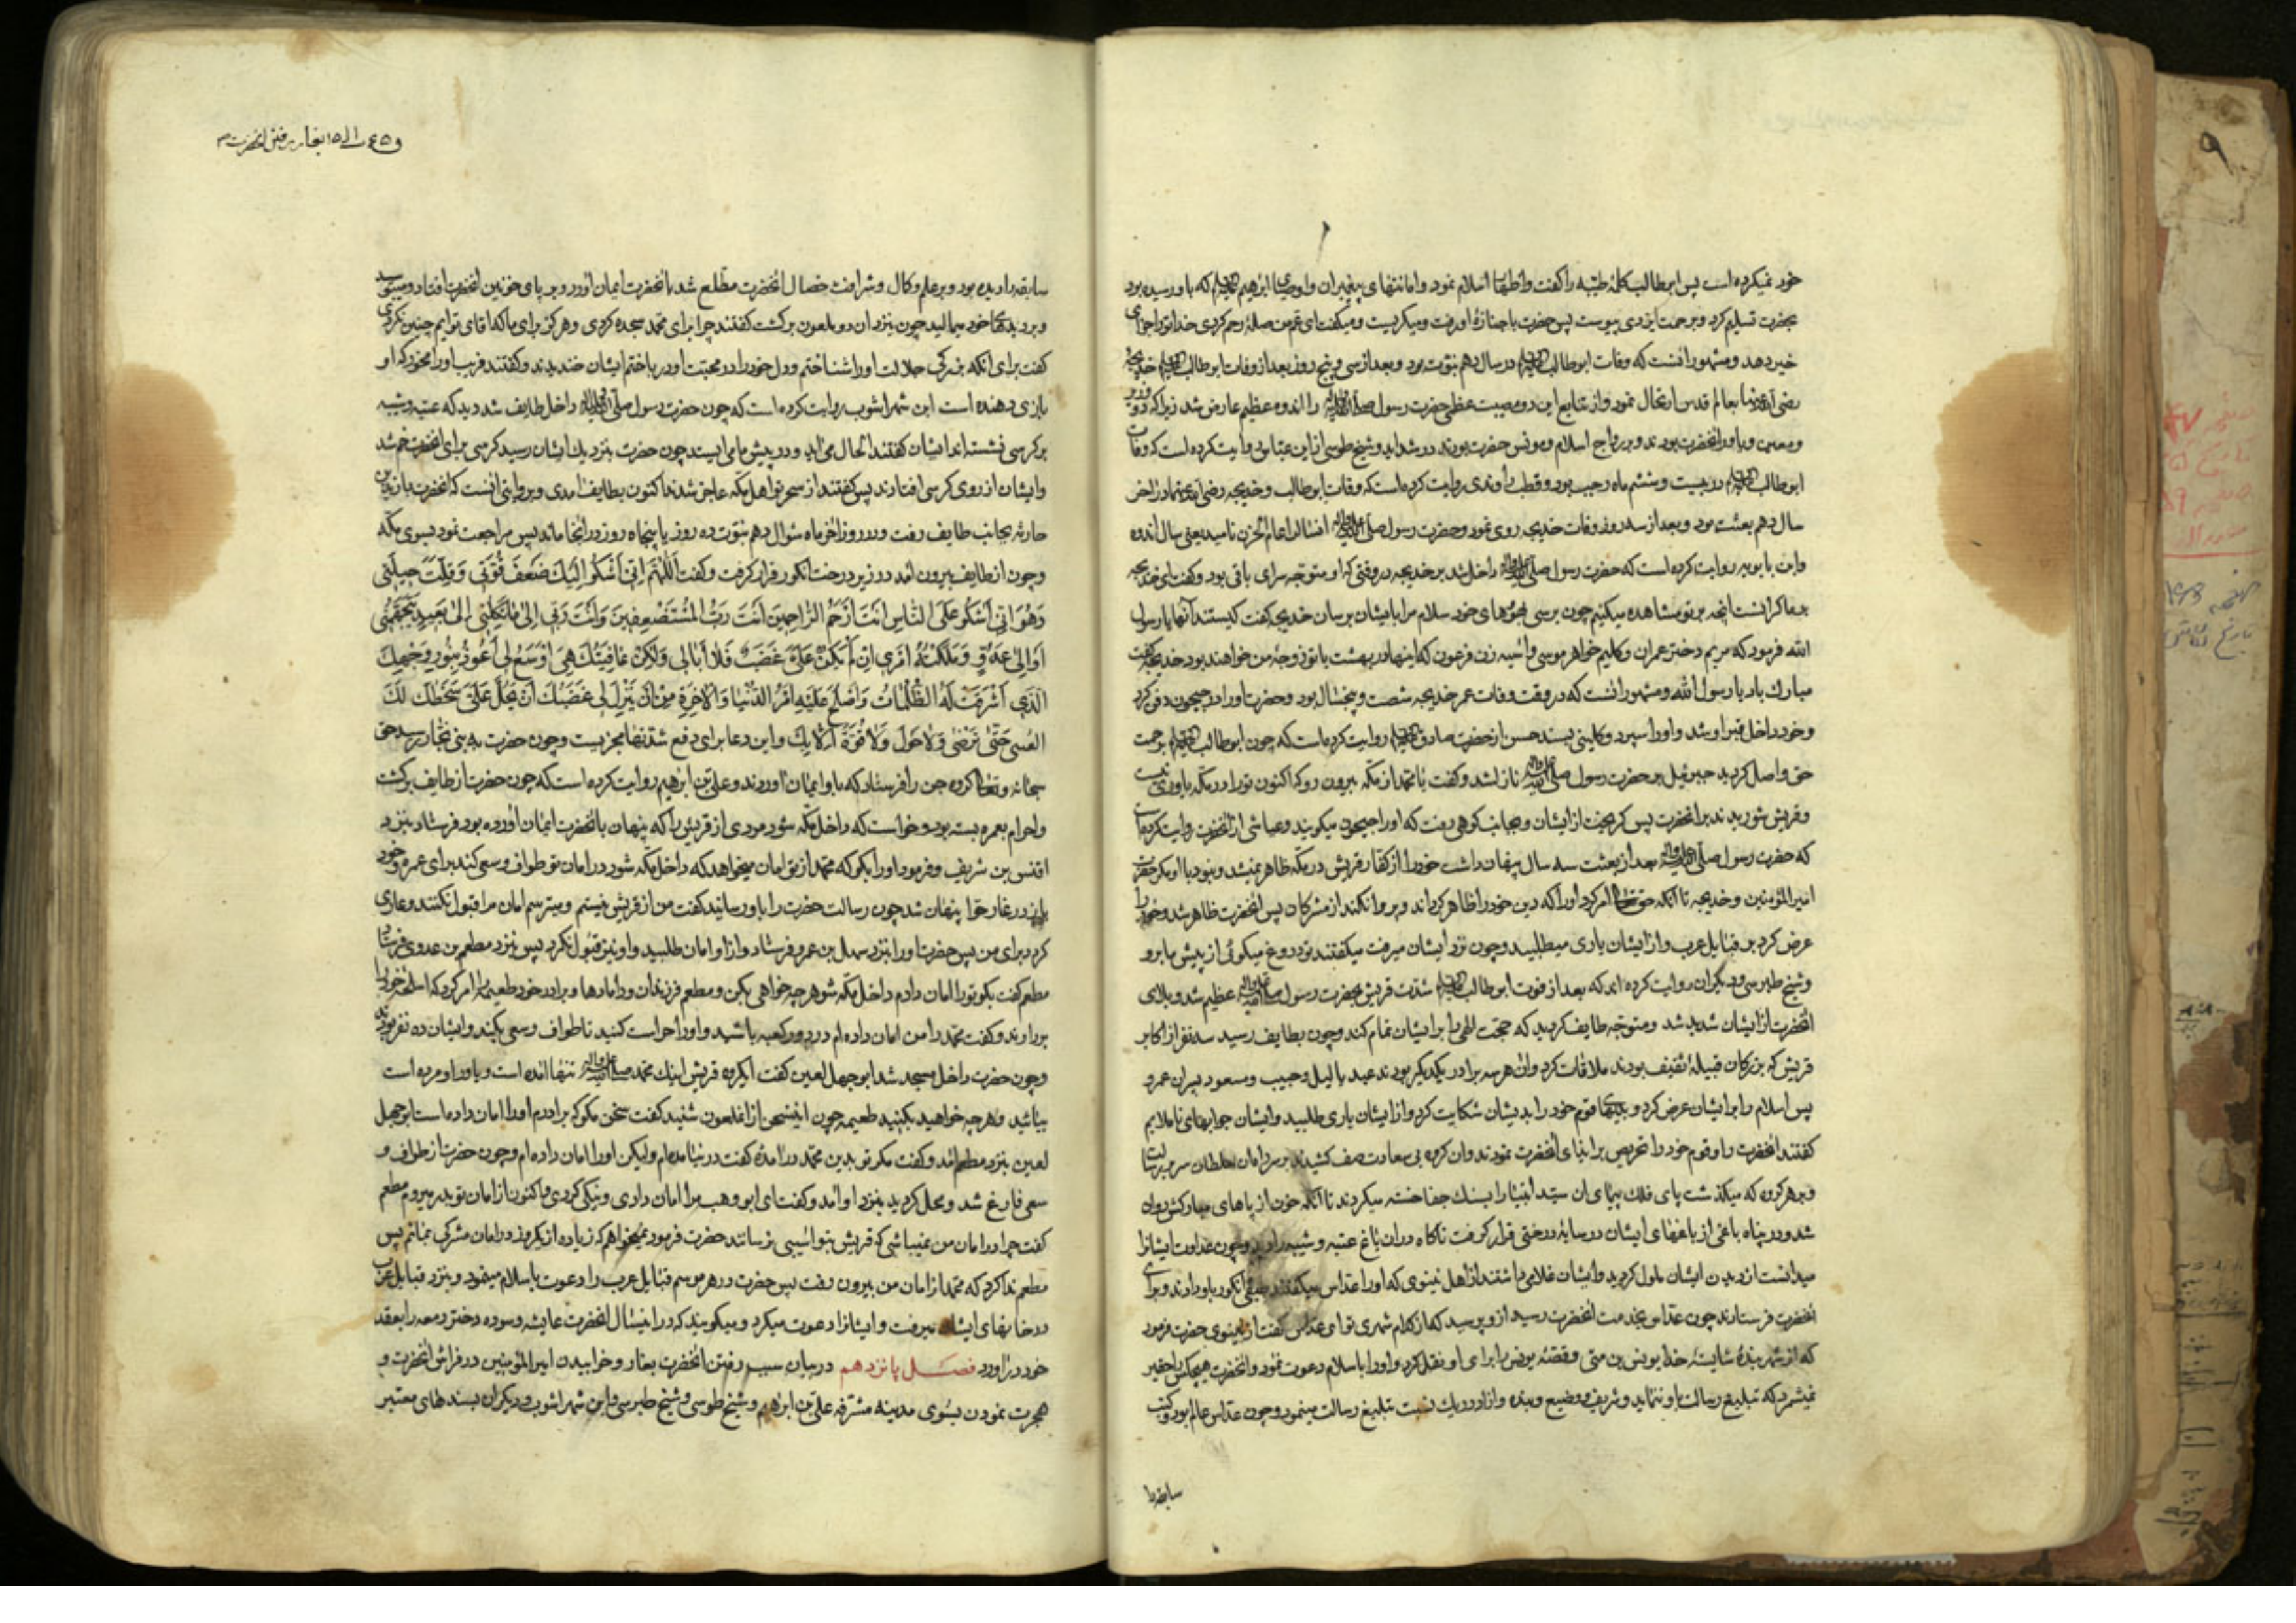 خود نمیکرده است پس ابوطالب کلمهٔ طیبه را گفت و اظهار اسلام نمود و امانتهای پیغمبران و اوصیای ابراهیم که باو رسیده بود
بحضرت تسلیم کرد و برحمت ایزدی پیوست پس حضرت با جنازهٔ او رفت و میگریست و میگفت ای عم من صلهٔ رحم کردی خدا ترا جزای
خیر دهد و مشهور آنست که وفات ابوطالب در سال دهم نبوت بود و بعد از سی و پنج روز بعد از وفات ابوطالب خدیجه
رضی الله عنها بعالم قدس ارتحال نمود و از تتابع این دو مصیبت عظمی حضرت رسول را اندوه عظیم عارض شد زیرا که دو وزیر
و معین و یاور آنحضرت بودند و برواج اسلام و مونس حضرت بودند در شداید و شیخ طوسی از ابن عباس روایت کرده است که وفات
ابوطالب در بیست و ششم ماه رجب بود و قطب راوندی روایت کرده است که وفات ابوطالب و خدیجه رضی الله عنهما در آخر
سال دهم بعثت بود و بعد از سه روز وفات خدیجه روی نمود و حضرت رسول صلی الله علیه و آله آنسال را عام الحزن نامید یعنی سال اندوه
و ابن بابویه روایت کرده است که حضرت رسول صلی الله علیه و آله داخل شد بر خدیجه در وقتی که او متوجه سرای باقی بود و گفت ای خدیجه
بر ما گرانست آنچه بر تو مشاهده میکنیم چون برسی بضرّهای خود سلام مرا بایشان برسان خدیجه گفت کیستند آنها یا رسول
الله فرمود که مریم دختر عمران و کلیم خواهر موسی و آسیه زن فرعون که اینها در بهشت با تو زوجهٔ من خواهند بود خدیجه گفت
مبارک باد یا رسول الله و مشهور آنست که در وقت وفات عمر خدیجه شصت و پنجسال بود و حضرت او را در حجون دفن کرد
و خود داخل قبر او شد و او را سپرد و کلینی بسند حسن از حضرت صادق روایت کرده است که چون ابوطالب برحمت
حق واصل گردید جبرئیل بر حضرت رسول صلی الله علیه و آله نازل شد و گفت یا محمد از مکه بیرون رو که اکنون تو را در مکه یاوری نیست
و قریش شوریدند بر آنحضرت پس گریخت از ایشان و بجانب کوهی رفت که او را حجون میگویند و عیاشی از آنحضرت روایت کرده است
که حضرت رسول صلی الله علیه و آله بعد از بعثت سه سال پنهان داشت خود را از کفار قریش در مکه ظاهر نمیشد و نبود با او مگر حضرت
امیر المؤمنین و خدیجه تا آنکه حق تعالی امر کرد او را که دین خود را ظاهر گرداند و پروا نکند از مشرکان پس آنحضرت ظاهر شد و خود را
عرض کرد بر قبایل عرب و از ایشان یاری میطلبید و چون نزد ایشان میرفت میگفتند تو دروغ میگوئی از پیش ما برو
و شیخ طبرسی و دیگران روایت کرده اند که بعد از فوت ابوطالب شدت قریش بحضرت رسول صلی الله علیه و آله عظیم شد و بلای
آنحضرت از ایشان شدید شد و متوجه طایف گردید که حجت الهی را بر ایشان تمام کند و چون بطایف رسید سه نفر از اکابر
قریش که بزرگان قبیلهٔ ثقیف بودند ملاقات کرد و آن هر سه برادر یکدیگر بودند عبد یالیل و حبیب و مسعود پسران عمرو
پس اسلام را بر ایشان عرض کرد و قوم خود را بدیشان شکایت کرد و از ایشان یاری طلبید و ایشان جوابهای ناملایم
گفتند آنحضرت را و قوم خود را تحریص بر ایذای آنحضرت نمودند و آن گروه بی سعادت صف کشیدند بر سر راه آن سلطان سریر رسالت
و بر هر کدام که میگذشت پای فلک پیمای آن سید انبیا را بسنک جفا خسته میکردند تا آنکه خون از پاهای مبارکش روان
شد و در پناه باغی از باغهای ایشان در سایهٔ درختی قرار گرفت ناگاه در آن باغ عتبه و شیبه را دید و چون عداوت ایشانرا
میدانست از دیدن ایشان ملول گردید و ایشان غلامی داشتند از اهل نینوی که او را عداس میگفتند انگور باو دادند و برای
آنحضرت فرستادند چون عداس بخدمت آنحضرت رسید از و پرسید که از کدام شهری تو ای عداس گفت از نینوی حضرت فرمود
که از شهر بندهٔ شایستهٔ خدا یونس بن متی و قصهٔ یونس را برای او نقل کرد و او را باسلام دعوت نمود و آنحضرت هیچکس را حقیر
نمیشمرد که تبلیغ رسالت باو ننماید و شریف و وضیع و بنده و آزاد در یک نسبت تبلیغ رسالت مینمود و چون عداس عالم بود و کتب
سابقه را
سابقه را دیده بود و بر علم و کمال و شرافت خصال آنحضرت مطلع شد بآنحضرت ایمان آورد و بر پای خونین آنحضرت افتاد و میبوسید
و بر دیدهای خود میمالید چون بنزد آن دو ملعون برگشت گفتند چرا برای محمد سجده کردی و هرگز برای ما که آقای توایم چنین نکردی
گفت برای آنکه بزرگی جلالت او را شناختم و دل خود را در محبت او در باختم ایشان خندیدند و گفتند فریب او را مخور که او
بازی دهنده است ابن شهرآشوب روایت کرده است که چون حضرت رسول صلی الله علیه و آله داخل طایف شد دید که عتبه و شیبه
بر کرسی نشسته اند ایشان گفتند الحال می آید و در پیش ما می ایستد چون حضرت بنزدیک ایشان رسید کرسی برای آنحضرت خم شد
و ایشان از روی کرسی افتادند پس گفتند از سحر تو اهل مکه عاجز شدند اکنون بطایف آمدی و بروایتی آنست که آنحضرت با زید بن
حارثه بجانب طایف رفت و در روز آخر ماه شوال دهم نبوت ده روز یا پنجاه روز در آنجا ماند پس مراجعت نمود بسوی مکه
و چون از طایف بیرون آمد در زیر درخت انگور قرار گرفت و گفت اَللّهُمَّ اِنّی اَشْکُو اِلَیْکَ ضَعْفَ قُوَّتی وَ قِلَّتَ حِیلَتی
وَهَوَانی عَلَی النّاسِ اَنْتَ اَرْحَمُ الرّاحِمِینَ اَنْتَ رَبُّ الْمُسْتَضْعِفِینَ وَ اَنْتَ رَبّی اِلیٰ مَنْ تَکِلُنی اِلیٰ بَعِیدٍ یَتَجَهَّمُنی
اَوْ اِلیٰ عَدُوٍّ مَلَّکْتَهُ اَمْرِی اِنْ لَمْ یَکُنْ عَلَیَّ غَضَبٌ فَلا اُبالِی وَلکِنْ عافِیَتُکَ هِیَ اَوْسَعُ لِی اَعُوذُ بِنُورِ وَجْهِکَ
الَّذِی اَشْرَقَتْ لَهُ الظُّلُماتُ وَ اَصْلَحَ عَلَیْهِ اَمْرُ الدُّنْیا وَ الْآخِرَةِ مِنْ اَنْ یَنْزِلَ لِی غَضَبُکَ اَنْ یَحُلَّ عَلَیَّ سَخَطُکَ لَکَ
العُتبی حَتّی تَرْضی وَلا حَوْلَ وَلا قُوَّةَ اِلّا بِکَ و این دعا برای دفع شدتها مجربست و چون حضرت
سبحانه و تعالی گروه جن را فرستاد که باو ایمان آوردند و علی بن ابراهیم روایت کرده است که چون حضرت از طایف برگشت
و احرام بعمره بسته بود و خواست که داخل مکه شود مردی از قریش را که پنهان بآنحضرت ایمان آورده بود فرستاد بنزد
اخنس بن شریف و فرمود او را بگو که محمد از تو امان میخواهد که داخل مکه شود در امان تو طواف و سعی کند برای عمره و خود
در غار حرا پنهان شد چون رسالت حضرت را باو رسانید گفت من از قریش نیستم و میترسم امان مرا قبول نکنند و عاری
گردد برای من پس حضرت او را بنزد سهل بن عمرو فرستاد و از او امان طلبید و او نیز قبول نکرد پس بنزد مطعم بن عدی فرستاد
مطعم گفت بگو تو را امان دادم داخل مکه شو هر چه خواهی بکن و مطعم فرزندان و دامادها و برادر خود طعیمه را امر کرد که اسلحهٔ خود را
بردارند و گفت محمد را من امان داده ام در دور کعبه باشید و او را حراست کنید تا طواف و سعی بکند و ایشان ده نفر بودند
و چون حضرت داخل مسجد شد ابوجهل لعین گفت ای گروه قریش اینک محمد صلی الله علیه و آله تنها آمده است و یاور او مرده است
بیائید و هر چه خواهید بکنید طعیمه چون این سخن از آنملعون شنید گفت سخن مگو که برادرم او را امان داده است ابوجهل
لعین بنزد مطعم آمد و گفت مگر تو بدین محمد درآمدهٔ گفت در نیامده ام ولیکن او را امان داده ام و چون حضرت از طواف و
سعی فارغ شد و محل گردید بنزد او آمد و گفت ای ابو وهب مرا امان دادی و نیکی کردی و اکنون از امان تو بدر میروم مطعم
گفت چرا در امان من نمیباشی که قریش بتو آسیبی نرسانند حضرت فرمود نمیخواهم که زیاده از یکروز در امان مشرک بمانم پس
مطعم ندا کرد که محمد از امان من بیرون رفت پس حضرت در هر موسم قبایل عرب را دعوت باسلام مینمود و بنزد قبایل عرب
در خانهای ایشان میرفت و ایشانرا دعوت میکرد و میگویند که در اینسال آنحضرت عایشه و سوده دختر زمعه را بعقد
خود درآورد فصل پانزدهم در بیان سبب رفتن آنحضرت بغار و خوابیدن امیر المؤمنین در فراش آنحضرت و
هجرت نمودن بسوی مدینه مشرفه علی بن ابراهیم و شیخ طوسی و شیخ طبرسی و ابن شهرآشوب و دیگران بسندهای معتبر